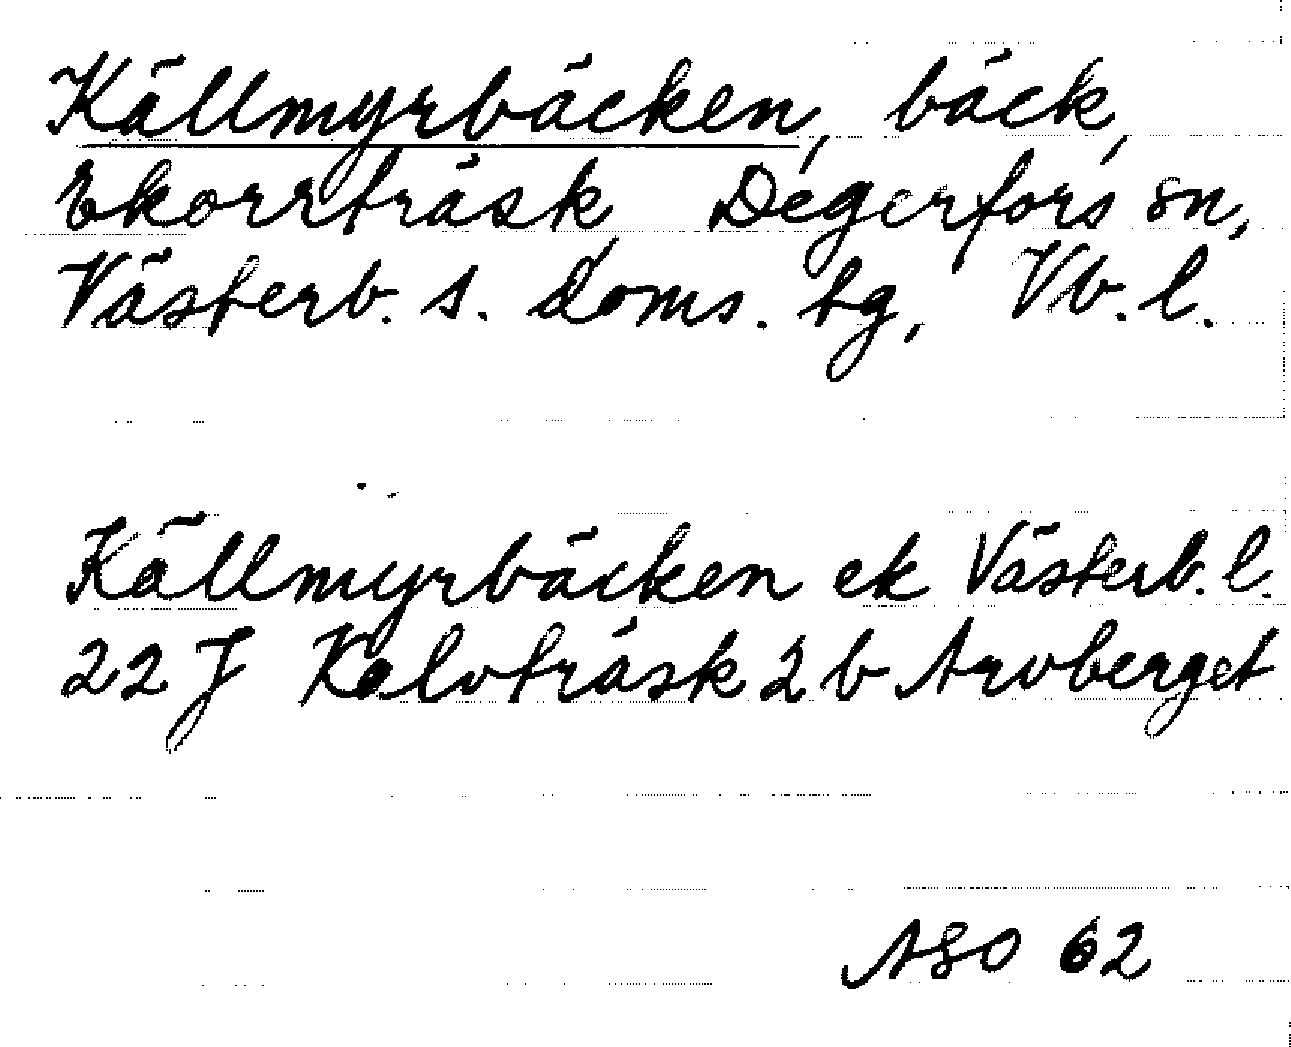 Källmyrbäcken, bäck,
Ekorrträsk, Degerfors sn,
Västerb. s. doms. tg, Vb. l.
Källmyrbäcken ek Västerb. l.
22 J Kalvträsk 2 b Arvberget
ASO 62